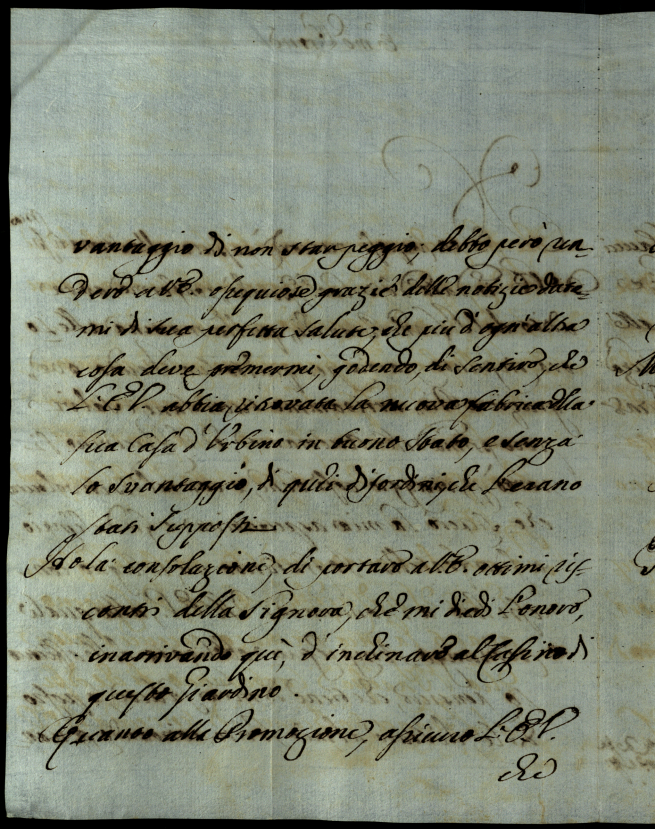 vantaggio di non star peggio, debbo però ren-
dere a V.E. ossequiose grazie delle notizie date-
mi di sua perfetta salute, che più d'ogn'altra
cosa deve premermi, godendo, di sentire, che
L'E.V. abbia ritrovata la nuova fabrica della
sua Casa d'Urbino in buono stato, e senza
lo svantaggio, di quei disordini, che l'erano
stati supposti.
Ho la consolazione, di portare a V.E. ottimi ris-
contri della Signora, che mi diedi l'onore,
in arrivando quì, d'inchinare al Casino di
questo Giardino.
Quanto alla Promozione, assicuro L'E.V.
che